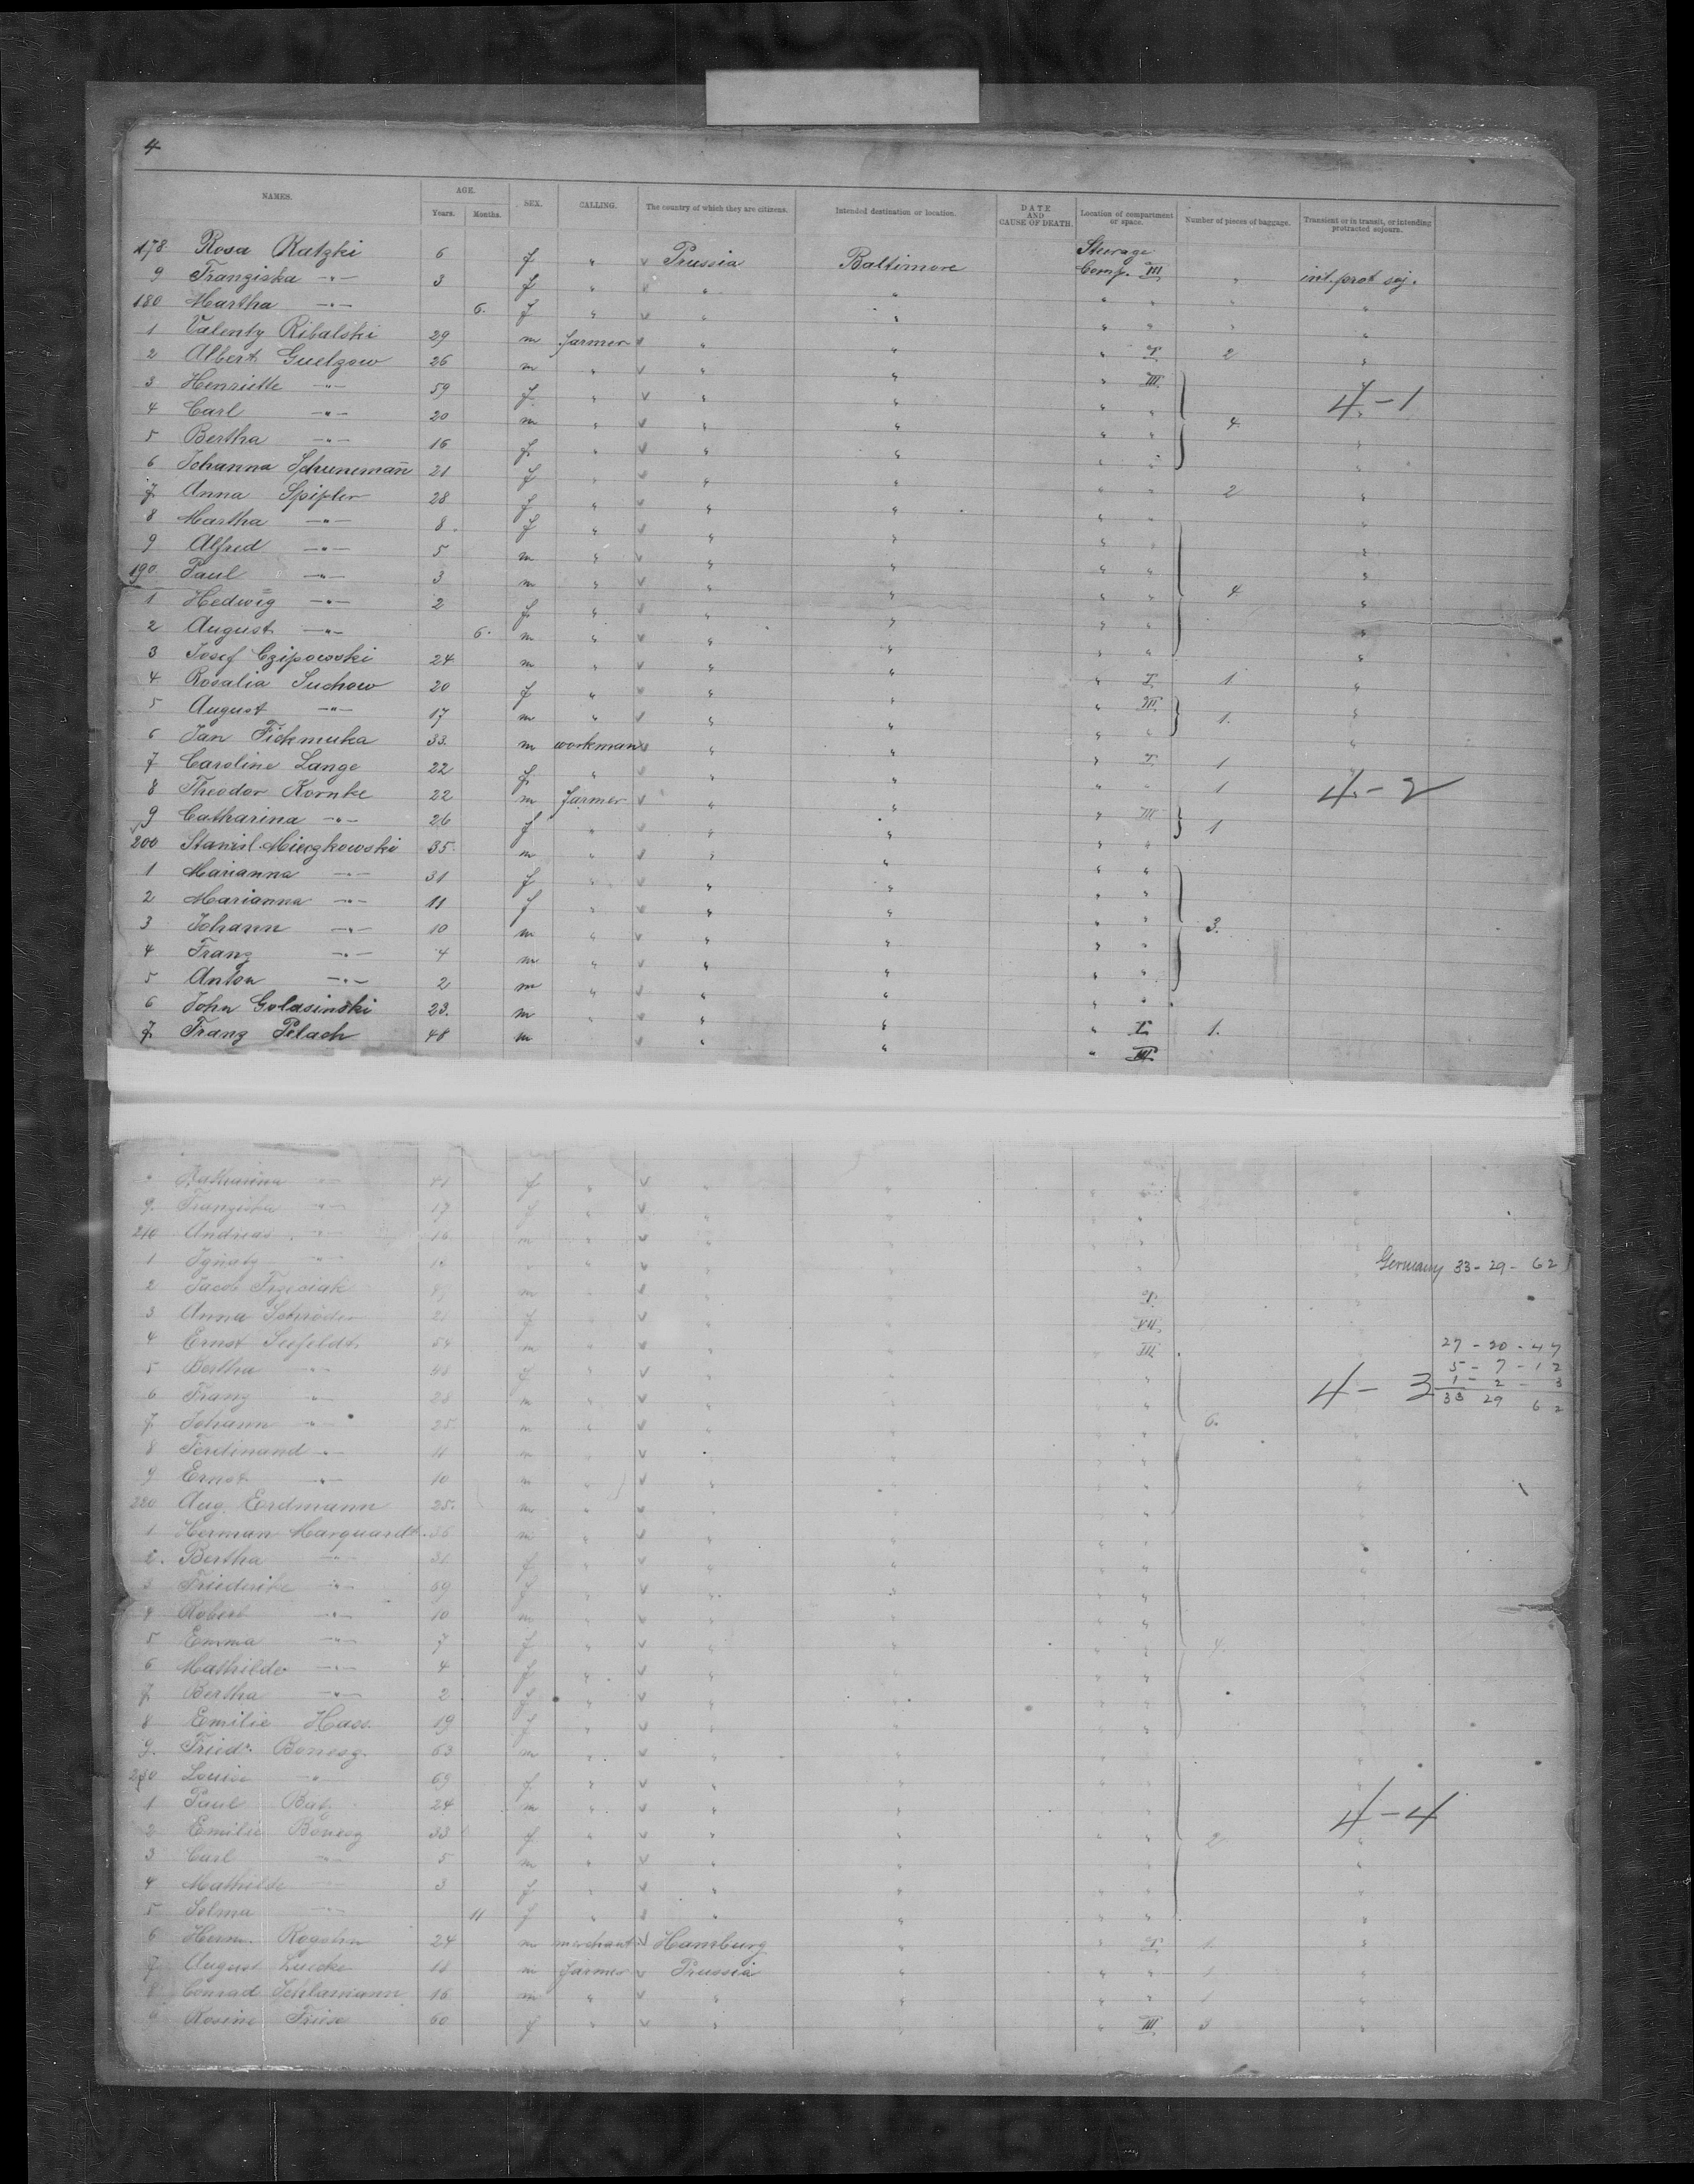 4
NAMES. AGE. Years. Months. SEX. CALLING. The country of which they are citizens. Intended destination or location. DATE AND CAUSE OF DEATH. Location of compartment or space. Number of pieces of baggage. Transient or in transit, or intending protracted sojourn.
178. Rosa Ratzki 6 f " v Prussia Baltimore Steerage Comp. III " int. prot soj.
9 Franziska -"- 3 f " v " " " " " "
180 Martha -"- 6. f " v " " " " " "
1 Valenty Ribalski 29 m farmer v " " " I 2 "
2 Albert Guelzow 26 m " v " " " III
3 Henriette -"- 59 f " v " " " " 4-1
4 Carl -"- 20 m " v " " " " 4 "
5 Bertha -"- 16 f " v " " " " "
6 Johanna Schunemañ 21 f " v " " " " 2 "
7 Anna 28 f " v " " " " "
8 Martha -"- 8. f " v " " " " "
9 Alfred -"- 5 m " v " " " " "
190 Paul -"- 3 m " v " " " " 4 "
1 Hedwig -"- 2 f " v " " " " "
2 August -"- 6. m " v " " " " "
3 Josef Czipowski 24 m " v " " " I 1 "
4 Rosalia Suchow 20 f " v " " " III "
5 August -"- 17 m " v " " " " 1. "
6 Jan Fickmuka 33. m workman v " " " I 1
7 Caroline Lange 22 f " v " " " " 1 4-2
8 Theodor Kornke 22 m farmer v " " " III
9 Catharina -"- 26 f " v " " " " 1
200 Stanisl. Mieczkowski 35. m " v " " " "
1 Marianna -"- 31 f " v " " " "
2 Marianna -"- 11 f " v " " " "
3 Johann -"- 10 m " v " " " " 3.
4 Franz -"- 4 m " v " " " "
5 Anton -"- 2 m " v " " " "
6 John Golasinski 23. m " v " " " I 1.
7 Franz Pelach 48 m v " " " III
Katharina -"- 41 f " v " " " " "
9. Franziska -"- 17 f " v " " " " "
210 Andreas -"- m " v " " "
1 Ignatz -"- " v " " Germany 33-29-62
2 Jacob Trzeciak m " v " I
3 Anna Schröder f " v " VII
4 Ernst Seefeldt 54 m " v " " III 27-20-47
5 Bertha -"- f " v " " " 5-7-12
6 Franz -"- 28 m " v " " " " 4-3 1-2-3
7 Johann -"- 25. m " v " " " " 6. 33 29 62
8 Ferdinand -"- 11 m v " " "
9 Ernst -"- 10 m " v " " " " "
220 Aug. Erdmann 25. m " v " " "
1 Herman Marquardt. 36 m " v " " " "
2. Bertha -"- 31 f " v " " " "
3 Friederike -"- 69 f " v " " " "
4 Robert -"- 10 m v " " " "
5 Emma -"- 7 f " v " " " " 4.
6 Mathilde -"- 4 f " v " " " "
7 Bertha -"- 2 f " v " " " "
8 Emilie Hass. 19 f " v " " " "
9. Friedr. Bonesz. 63 m " v " "
230 Louise -"- 69 f " v " " " "
1 Paul Batz 24 m " v " " " 4-4
2 Emilie Bonesz 33 f " v " " " " 2 "
3 Carl -"- 5 m " v " " "
4 Mathilde -"- 3 f " v " " " "
5 Selma -"- 11 f " v " " " " "
6 Herm. Rogahn 24 m merchant v Hamburg " " I 1. "
7 August Luecke 18 m farmer v Prussia " " " 1 "
8 Conrad Schlamann 16 m " v " " " " 1 "
9 Rosine Friese 60 f " v " " III 3 "